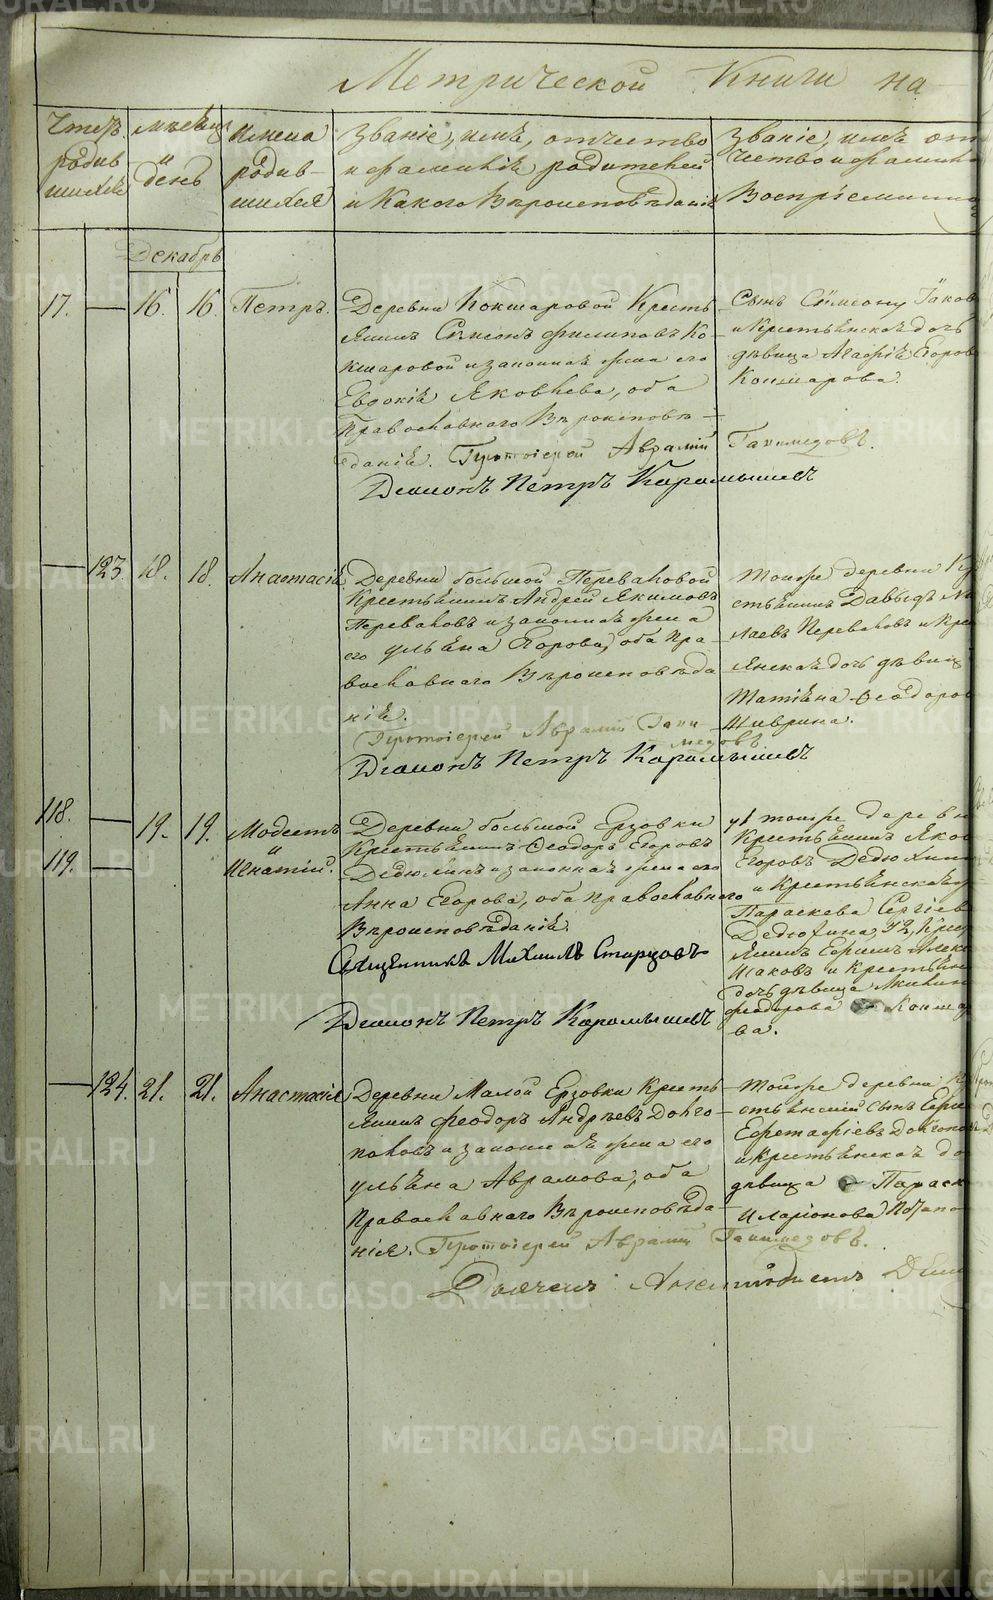 Метрической Книги на
Счетъ
родив
шихся
мѣсяцъ
и
день
Имена
родив-
шихся
Званіе, имя, отчество
и фамилія родителей
и какого Вѣроисповѣданія
Званіе, имя от
чество и фамилія
Воспріемник
Декабрь
17. 16. 16. Петръ.
Деревни Кокшаровой Кресть
янинъ Симеонъ Филиповъ Ко
кшаровой и законная жена его
Евдокія Яковлева, оба
Православнаго Вѣроисповѣ-
данія. Протоіерей Аврамій Ганимедовъ.
Діаконъ Петръ Карамышевъ
Сынъ Симеону Іаков
и Крестьянская дочь
дѣвица Агафія Егоров
Кокшарова.
123. 18. 18. Анастасія
Деревни большой Переваловой
Крестьянинъ Андрей Якимовъ
Переваловъ и законная жена
его Ульяна Егорова, оба Пра-
вославнаго Вѣроисповѣда
нія.
Протоіерей Аврамій Гани-
медовъ.
Діаконъ Петръ Карамышевъ
тойже деревни Кре
стьянинъ Давыдъ Ни
лаевъ Переваловъ и Крес
янская дочь дѣвица
Татіяна Ѳеодоров
Шиврина.
118. 19. 19. Модестъ
и
119. Игнатій.
Деревни большой Ерзовки
Крестьянинъ Ѳеодоръ Егоровъ
Дедюхинъ и законная жена его
Анна Егорова, оба православнаго
Вѣроисповѣданія.
Священникъ Михаилъ Старцовъ
Діаконъ Петръ Карамышевъ
у 1 тойже деревни
Крестьянинъ Яков
Егоровъ Дедюхин
и Крестьянская
Параскева Сергіев
Дедюхина, у 2, Крес
янинъ Ефимъ Алекс
Исаковъ и Крестьян
дочь дѣвица Акилин
Феодорова Кокшар
ва.
124. 21. 21. Анастасія
Деревни Малой Ерзовки Кресть
янинъ Феодоръ Андреевъ Долго
половъ и законная жена его
Ульяна Аврамова, оба
Православнаго Вѣроисповѣда
нія. Протоіерей Аврамій Ганимедовъ.
Дьячекъ
тойже деревни Кре
стьянскій сынъ
Евстафіевъ Долгопо
и Крестьянская до
дѣвица Параск
Иларіонова Потапо